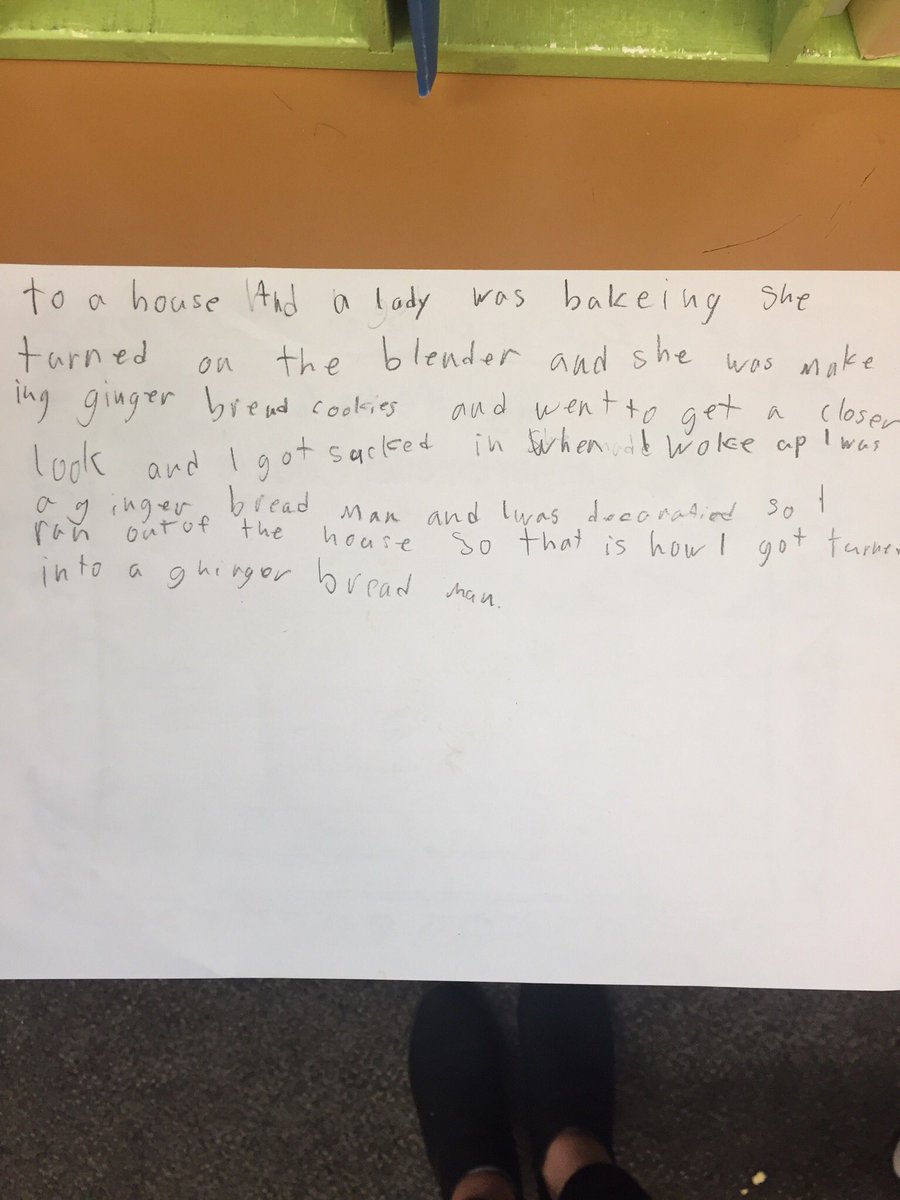 to a house And a lady was bakeing she
turned on the blender and she was make
ing ginger bread cookies and went to get a closer
look and I got sucked in when I woke up I was
a ginger bread man and I was decoratied so I
ran out of the house so that is how I got turne
into a ghinger bread man.